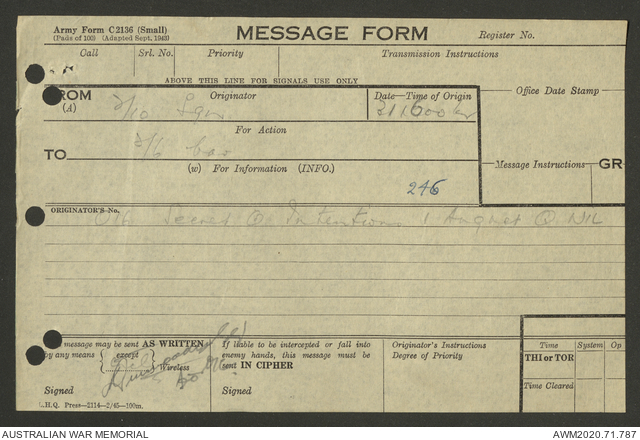 Army Form C2136 (Small)
(Pads of 100) (Adapted Sept. 1943)
MESSAGE FORM
Register No.
Call Srl. No. Priority Transmission Instructions
ABOVE THIS LINE FOR SIGNALS USE ONLY
FROM (A) 2/10 Originator Date—Time of Origin
311600
Office Date Stamp
For Action
TO
(W) For Information (INFO.)
Message Instructions GR
246
ORIGINATOR'S No.
Secret O. Intentions 1 August O. NIL
message may be sent AS WRITTEN
by any means { except } Wireless
Signed
If liable to be intercepted or fall into
enemy hands, this message must be
sent IN CIPHER
Signed
Originator's Instructions
Degree of Priority
Time System Op
THI or TOR
Time Cleared
L.H.Q. Press—2114—2/45—100m.
AUSTRALIAN WAR MEMORIAL
AWM2020.71.787